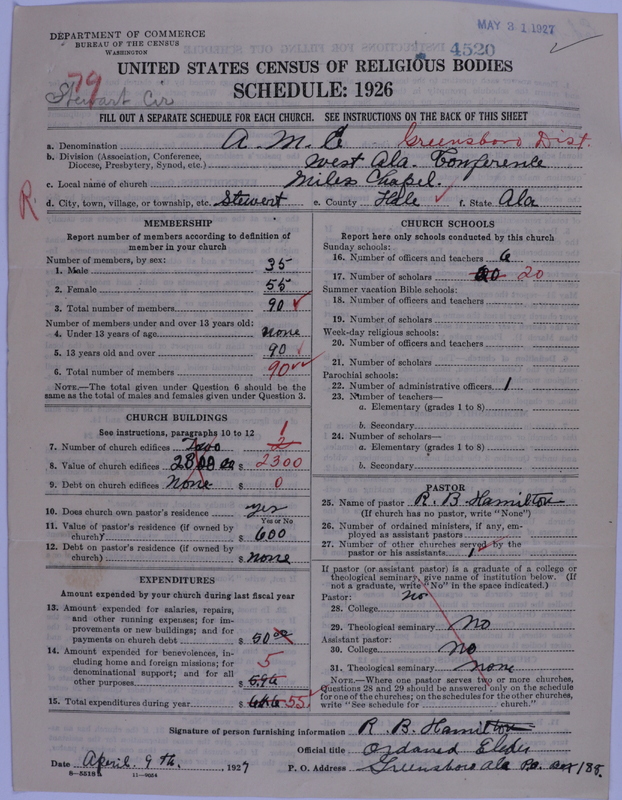 MAY 31 1927
DEPARTMENT OF COMMERCE
BUREAU OF THE CENSUS
WASHINGTON
4520
79
Stewart Cir
UNITED STATES CENSUS OF RELIGIOUS BODIES
SCHEDULE: 1926
FILL OUT A SEPARATE SCHEDULE FOR EACH CHURCH. SEE INSTRUCTIONS ON THE BACK OF THIS SHEET
a. Denomination A. M. E Greensboro Dist.
b. Division (Association, Conference, Diocese, Presbytery, Synod, etc.) West Ala. Conference
c. Local name of church Miles Chapel.
R. d. City, town, village, or township, etc. Stewert e. County Hale f. State Ala
MEMBERSHIP
Report number of members according to definition of
member in your church
Number of members, by sex:
1. Male 35
2. Female 55
3. Total number of members 90
Number of members under and over 13 years old:
4. Under 13 years of age none
5. 13 years old and over 90
6. Total number of members 90
NOTE.—The total given under Question 6 should be
same as the total of males and females given under Question 3.
CHURCH BUILDINGS
See instructions, paragraphs 10 to 12
1
7. Number of church edifices 2
8. Value of church edifices $ 2300
9. Debt on church edifices None $ 0
10. Does church own pastor's residence yes
Yes or No
11. Value of pastor's residence (if owned by
church) $ 600
12. Debt on pastor's residence (if owned by
church) $ none
EXPENDITURES
Amount expended by your church during last fiscal year
13. Amount expended for salaries, repairs,
and other running expenses; for im-
provements or new buildings; and for
payments on church debt $ 50 00
14. Amount expended for benevolences, in-
cluding home and foreign missions; for
denominational support; and for all
other purposes $ 5
15. Total expenditures during year $ 55
CHURCH SCHOOLS
Report here only schools conducted by this church
Sunday schools:
16. Number of officers and teachers 6
17. Number of scholars 20
Summer vacation Bible schools:
18. Number of officers and teachers
19. Number of scholars
Week-day religious schools:
20. Number of officers and teachers
21. Number of scholars
Parochial schools:
22. Number of administrative officers 1
23. Number of teachers—
a. Elementary (grades 1 to 8)
b. Secondary
24. Number of scholars—
a. Elementary (grades 1 to 8)
b. Secondary
PASTOR
25. Name of pastor R. B Hamilton
(If church has no pastor, write "None")
26. Number of ordained ministers, if any, em-
ployed as assistant pastors
27. Number of other churches served by the
pastor or his assistants 1
If pastor (or assistant pastor) is a graduate of a college or
theological seminary, give name of institution below. (If
not a graduate, write "No" in the space indicated.)
Pastor: no
28. College
29. Theological seminary No
Assistant pastor:
30. College No
31. Theological seminary none
NOTE.—Where one pastor serves two or more churches,
Questions 28 and 29 should be answered only on the schedule
for one of the churches; on the schedules for the other churches,
write "See schedule for church."
Signature of person furnishing information R. B. Hamilton
Official title Ordaned Elder
Date April 9th, 1927 P. O. Address Greensboro Ala Po. Box 188.
8—5519 11—9054